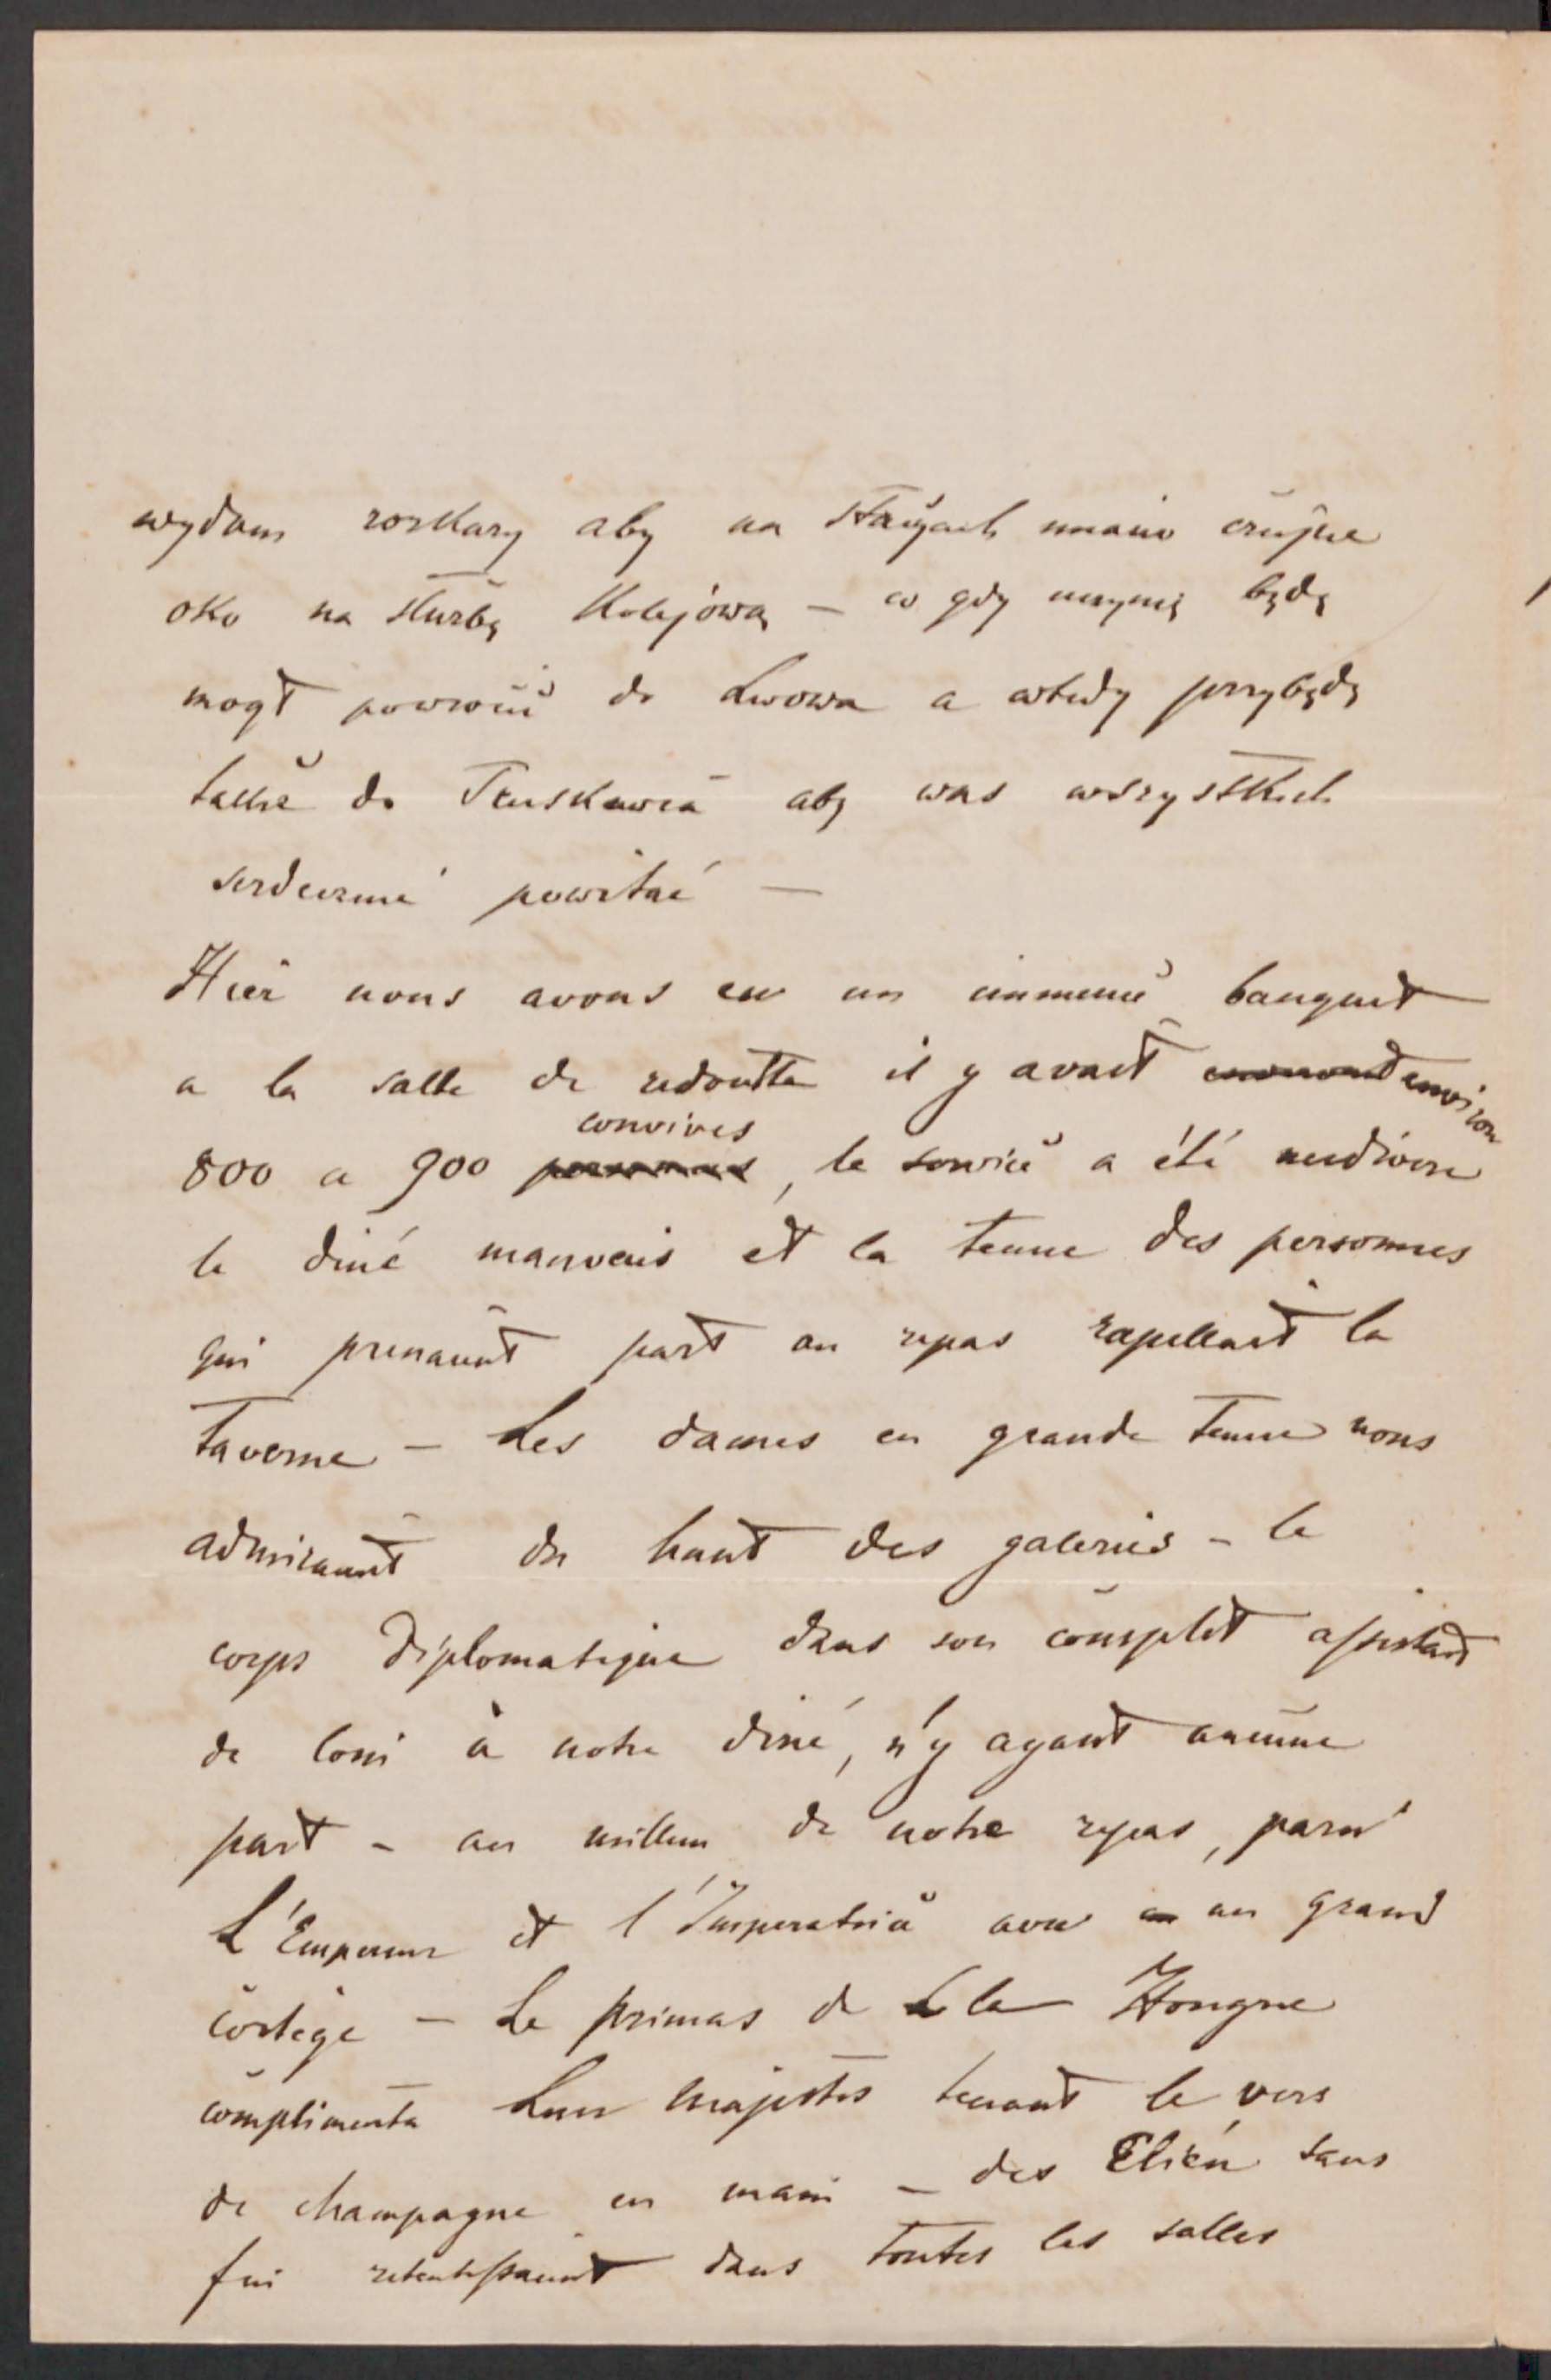 wydam rozkazy aby na stacyach miano czujne
oko na służbę Kolejową – co gdy uczynię będę
mógł powrócić do Lwowa a wtedy przybędę
także do Truskawca aby was wszystkich
serdecznie powitać —
Hier nous avons eu un immense banquet
a la salle de redoutte il y avait environ
800 a 900 convives, le service a été mediocre
le diné mauvais et la tenue des personnes
qui prenaient part au repas rapellait la
taverne – Les dames en grande tenue nous
admiraient du haut des galeries – le
corps diplomatique dans son complet assistait
de loin à notre diné, n'y ayant aucune
part – au millieu de notre repas, parut
L'Empereur et l'Imperatrice avec un grand
cortège – Le primas de la Hongrie
complimenta Leur Majestés tenant le vers
de champagne en main – des Elien sans
fin retentissaient dans toutes les salles